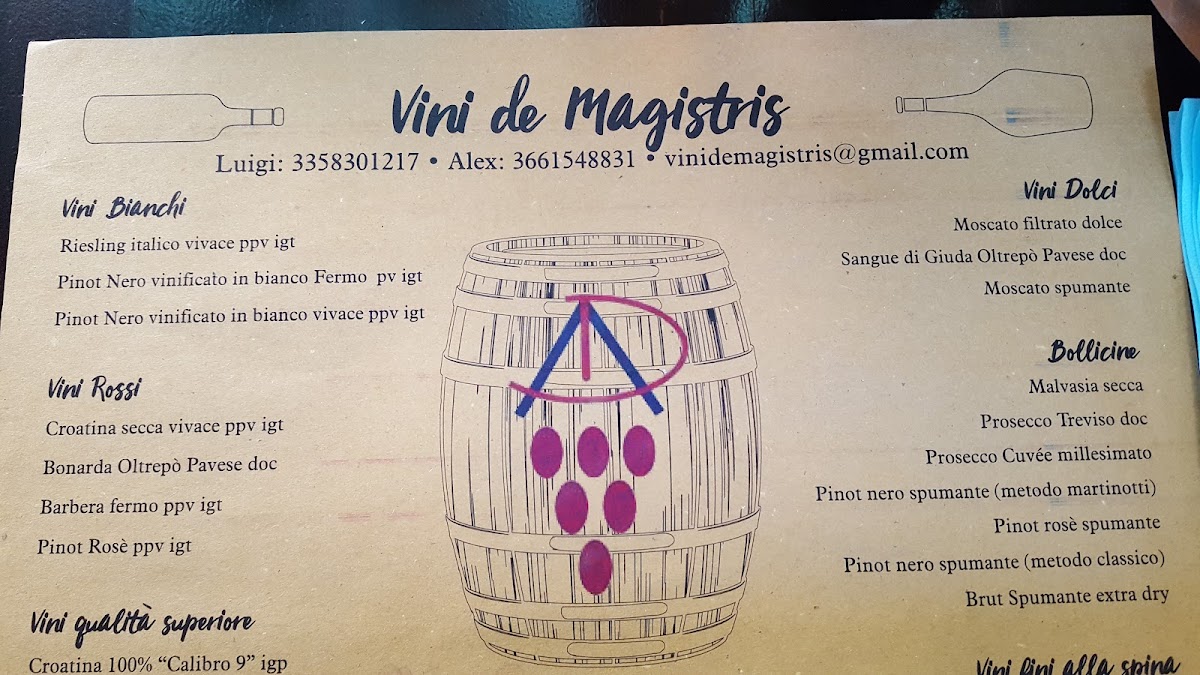 Vini de Magistris
Luigi: 3358301217 • Alex: 3661548831 • vinidemagistris@gmail.com
Vini Bianchi
Riesling italico vivace ppv igt
Pinot Nero vinificato in bianco Fermo pv igt
Pinot Nero vinificato in bianco vivace ppv igt
Vini Rossi
Croatina secca vivace ppv igt
Bonarda Oltrepò Pavese doc
Barbera fermo ppv igt
Pinot Rosè ppv igt
Vini qualità superiore
Croatina 100% “Calibro 9” igp
Vini Dolci
Moscato filtrato dolce
Sangue di Giuda Oltrepò Pavese doc
Moscato spumante
Bollicine
Malvasia secca
Prosecco Treviso doc
Prosecco Cuvée millesimato
Pinot nero spumante (metodo martinotti)
Pinot rosè spumante
Pinot nero spumante (metodo classico)
Brut Spumante extra dry
Vini fini alla spina